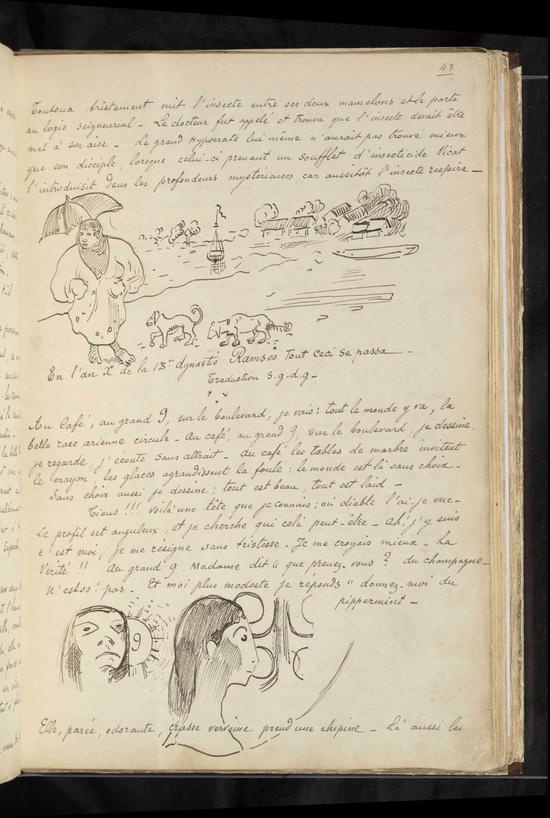 43
Toutoua tristement mit l'insecte entre ses deux mamelons et le porta
au logis seigneurial _ Le docteur fut appelé et trouva que l'insecte devait être
mal à son aise _ Le grand Hypocrate lui même n'aurait pas trouvé mieux
que son disciple, lorsque celui-ci prenant un soufflet d'insecticide Vicat
l'introduisit dans les profondeurs mystérieuses car aussitôt l'insecte respira _
En l'an X de la 18e dynastie Ramses tout ceci se passa _
Traduction S.g.d.g _
Au Café, au grand 9, sur le boulevard, je vais: tout le monde y va, la
belle race arienne circule _ Au café, au grand 9, sur le boulevard, je dessine,
je regarde, j'écoute sans attrait _ Au café les tables de marbre invitent
le crayon, les glaces agrandissent la foule: le monde est là sans choix _
Sans choix aussi je dessine; tout est beau, tout est laid _
Tiens!!! voilà une tête que je connais; où diable l'ai-je vue _
Le profil est anguleux, et je cherche qui celà peut-être _ Ah! j'y suis
c'est moi, je me résigne sans tristesse. Je me croyais mieux _ La
Vérité!! Au grand 9. Madame dit "que prenez vous? du champagne _
N'est-ce pas _ Et moi plus modeste je réponds "donnez-moi du
pippermint _
9
Elle, parée, odorante, crasse verveine prend une chopine _ Là aussi les